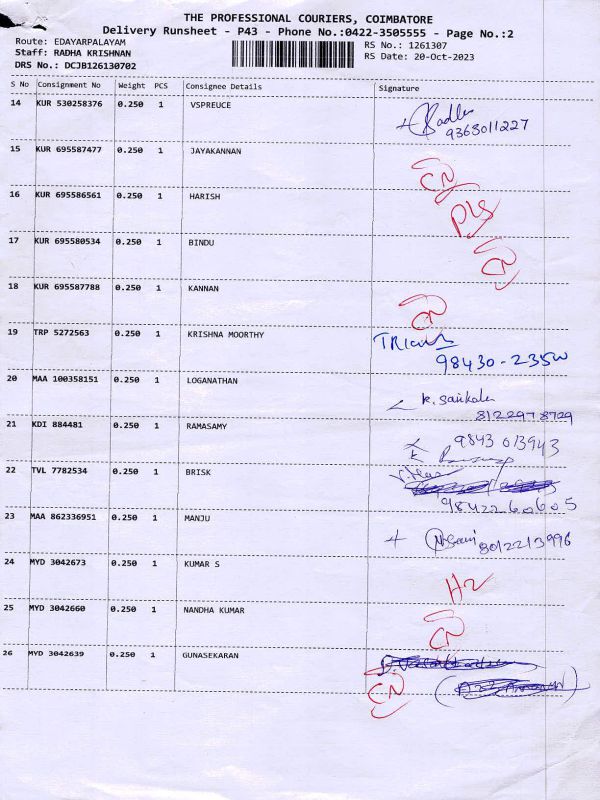 THE PROFESSIONAL COURIERS, COIMBATORE
Delivery Runsheet - P43 - Phone No.:0422-3505555 - Page No.:2
Route: EDAYARPALAYAM
RS No.: 1261307
Staff: RADHA KRISHNAN
RS Date: 20-Oct-2023
DRS No.: DCJB126130702
S No Consignment No Weight PCS Consignee Details Signature
14 KUR 530258376 0.250 1 VSPREUCE
9363011227
15 KUR 695587477 0.250 1 JAYAKANNAN CN
16 KUR 695586561 0.250 1 HARISH
17 KUR 695580534 0.250 1 BINDU CN
18 KUR 695587788 0.250 1 KANNAN CN
19 TRP 5272563 0.250 1 KRISHNA MOORTHY
20 MAA 100358151 0.250 1 LOGANATHAN
8122978729
21 KDI 884481 0.250 1 RAMASAMY 9843013943
22 TVL 7782534 0.250 1 BRISK
9842260605
23 MAA 862336951 0.250 1 MANJU 8012213996
24 MYD 3042673 0.250 1 KUMAR S
25 MYD 3042660 0.250 1 NANDHA KUMAR CN
26 MYD 3042639 0.250 1 GUNASEKARAN
CN